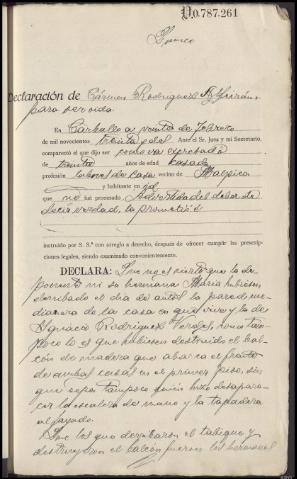 D.0.787.261
Declaración de Cármen Rodríguez
para servida
En Carballo a veinte de Febrero
de mil novecientos treinta y dos Ante el Sr. Juez y mi Secretario,
compareció el que dijo ser como va expresado
de treinta años de edad casada
profesión labores de casa vecino de Malpica
y habitante en id
que no fué procesado Advertida del deber de
decir verdad, lo prometió
instruído por S. S.ª con arreglo a derecho, después de ofrecer cumplir las prescrip-
ciones legales, siendo examinado convenientemente.
DECLARA: Que no es cierto que la de-
ponente ni su hermana María hubiesen
derribado el dia de autos la pared me-
dianera de la casa en que vive y la de
Ignacia Rodríguez Verdes, como tam-
poco lo es que hubiesen destruido el bal-
cón de madera que abarca el frente
de ambas casas en el primer piso, sin
que sepa tampoco quien hizo desapare-
cer la escalera de mano y la tapadera
al fayado.
Que los que derribaron el tabique y
destruyeron el balcón fueron los hermanos